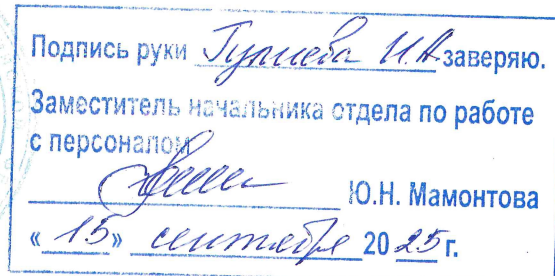 Подпись руки Гулиева И.А заверяю.
Заместитель начальника отдела по работе
с персоналом
Ю.Н. Мамонтова
« 15 » сентября 20 25 г.